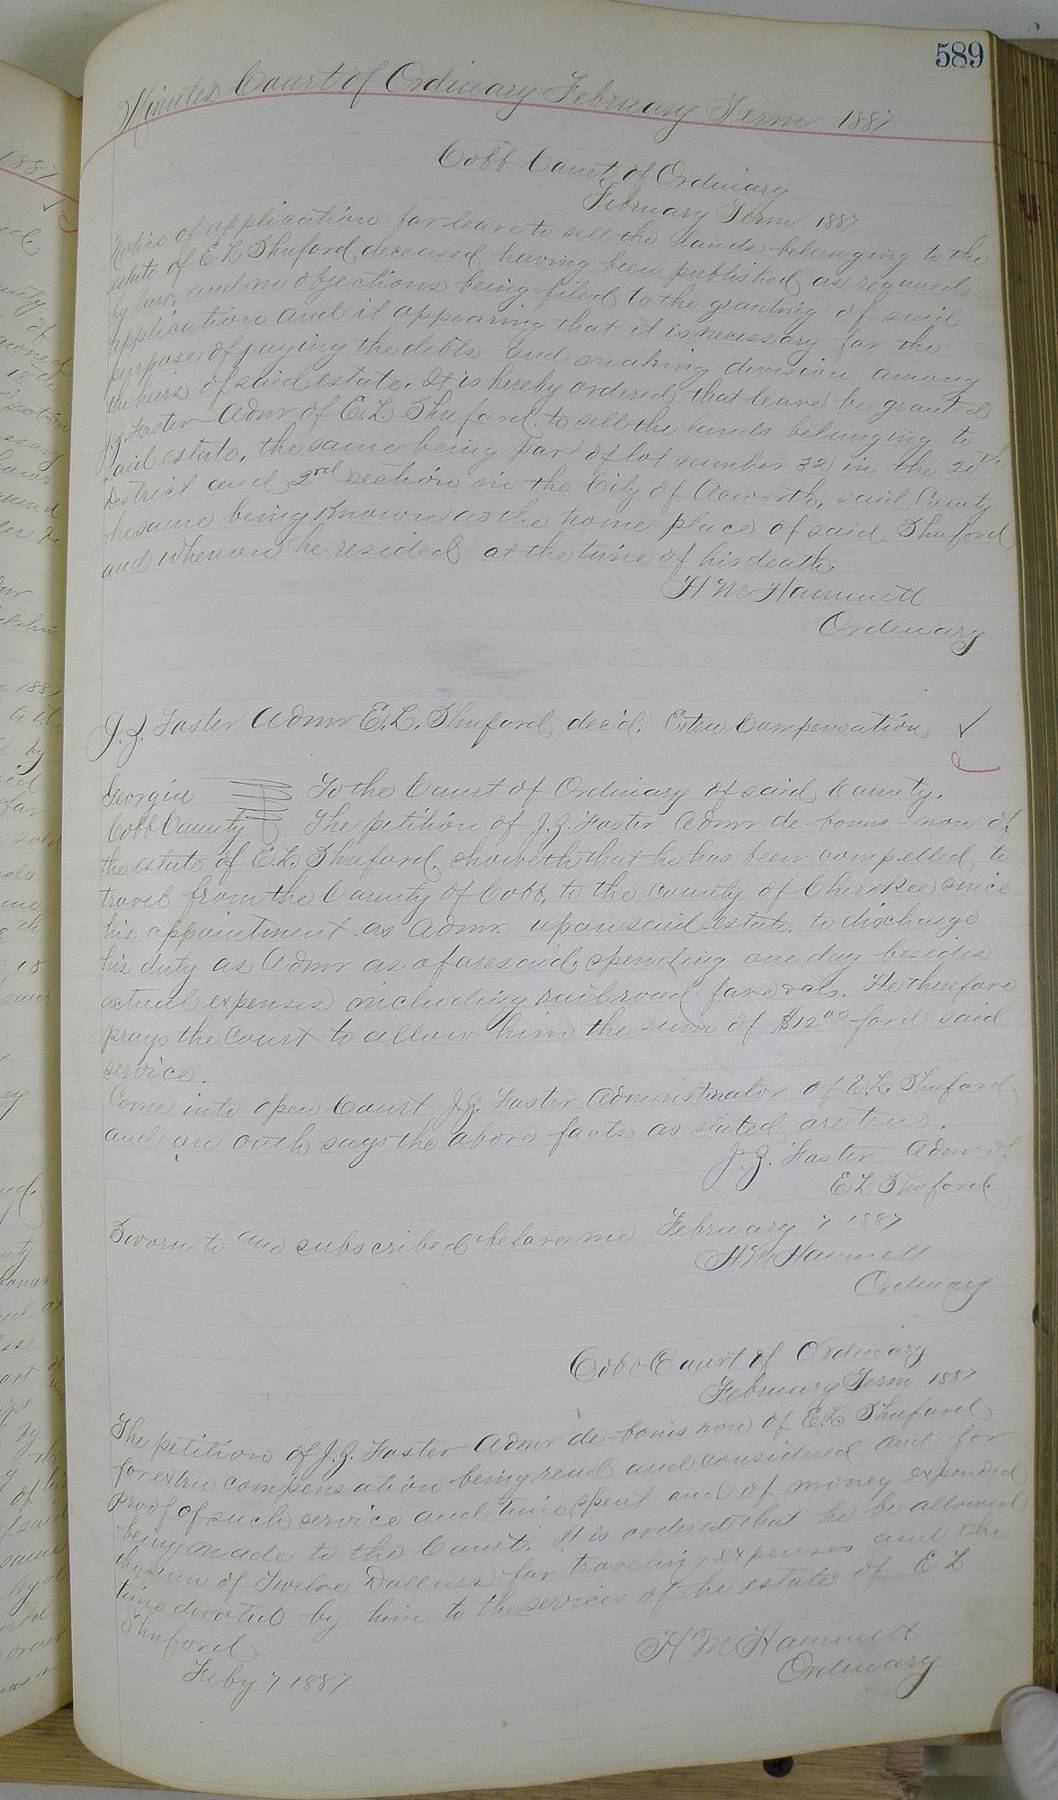 589
Minutes Court of Ordinary February Term 1887
Cobb Court of Ordinary
February Term 1887
Notice of application for leave to sell the lands belonging to the
estate of E L Shuford deceased having been published as required
by law, and no objections being filed to the granting of said
application and it appearing that it is necessary for the
purpose of paying the debts and making division among
the heirs of said estate. It is hereby ordered that leave be granted
J. J. Foster Admr of E. L Shuford to sell the lands belonging to
said estate, the same being part of lot number 32 in the 20th
District and 2nd section in the City of Acworth, said County
the same being known as the home place of said Shuford
and whereon he resided at the time of his death.
H M Hammett
Ordinary
J. J. Foster Admr E. L. Shuford dec'd. Extra Compensation
Georgia To the Court of Ordinary of said County.
Cobb County The petition of J. J. Foster Admr de bonus non of
the estate of E L Shuford, showeth that he has been compelled to
travel from the County of Cobb, to the county of Cherokee since
his appointment as Admr. upon said estate, to discharge
his duty as Admr as aforesaid, spending one day besides
actual expenses including railroad fare &c. He therefore
prays the Court to allow him the sum of $12 00 for said
service.
Come into open Court J. J. Foster Administrator of E. L Shuford
and on oath says the above facts as stated are true.
J. J. Foster Admr of
E L Shuford
Sworn to and subscribed before me February 7 1887
H M Hammett
Ordinary
Cobb Court of Ordinary
February Term 1887
The petition of J. J. Foster Admr de-bonis non of E L Shuford
for extra compensation being read and considered and for
proof of such service and time spent and of money expended
being made to the Court. It is ordered that he be allowed
the sum of Twelve Dollars for traveling expenses and the
time devoted by him to the services of the estate of E L
Shuford
Feby 7 1887
H M Hammett
Ordinary